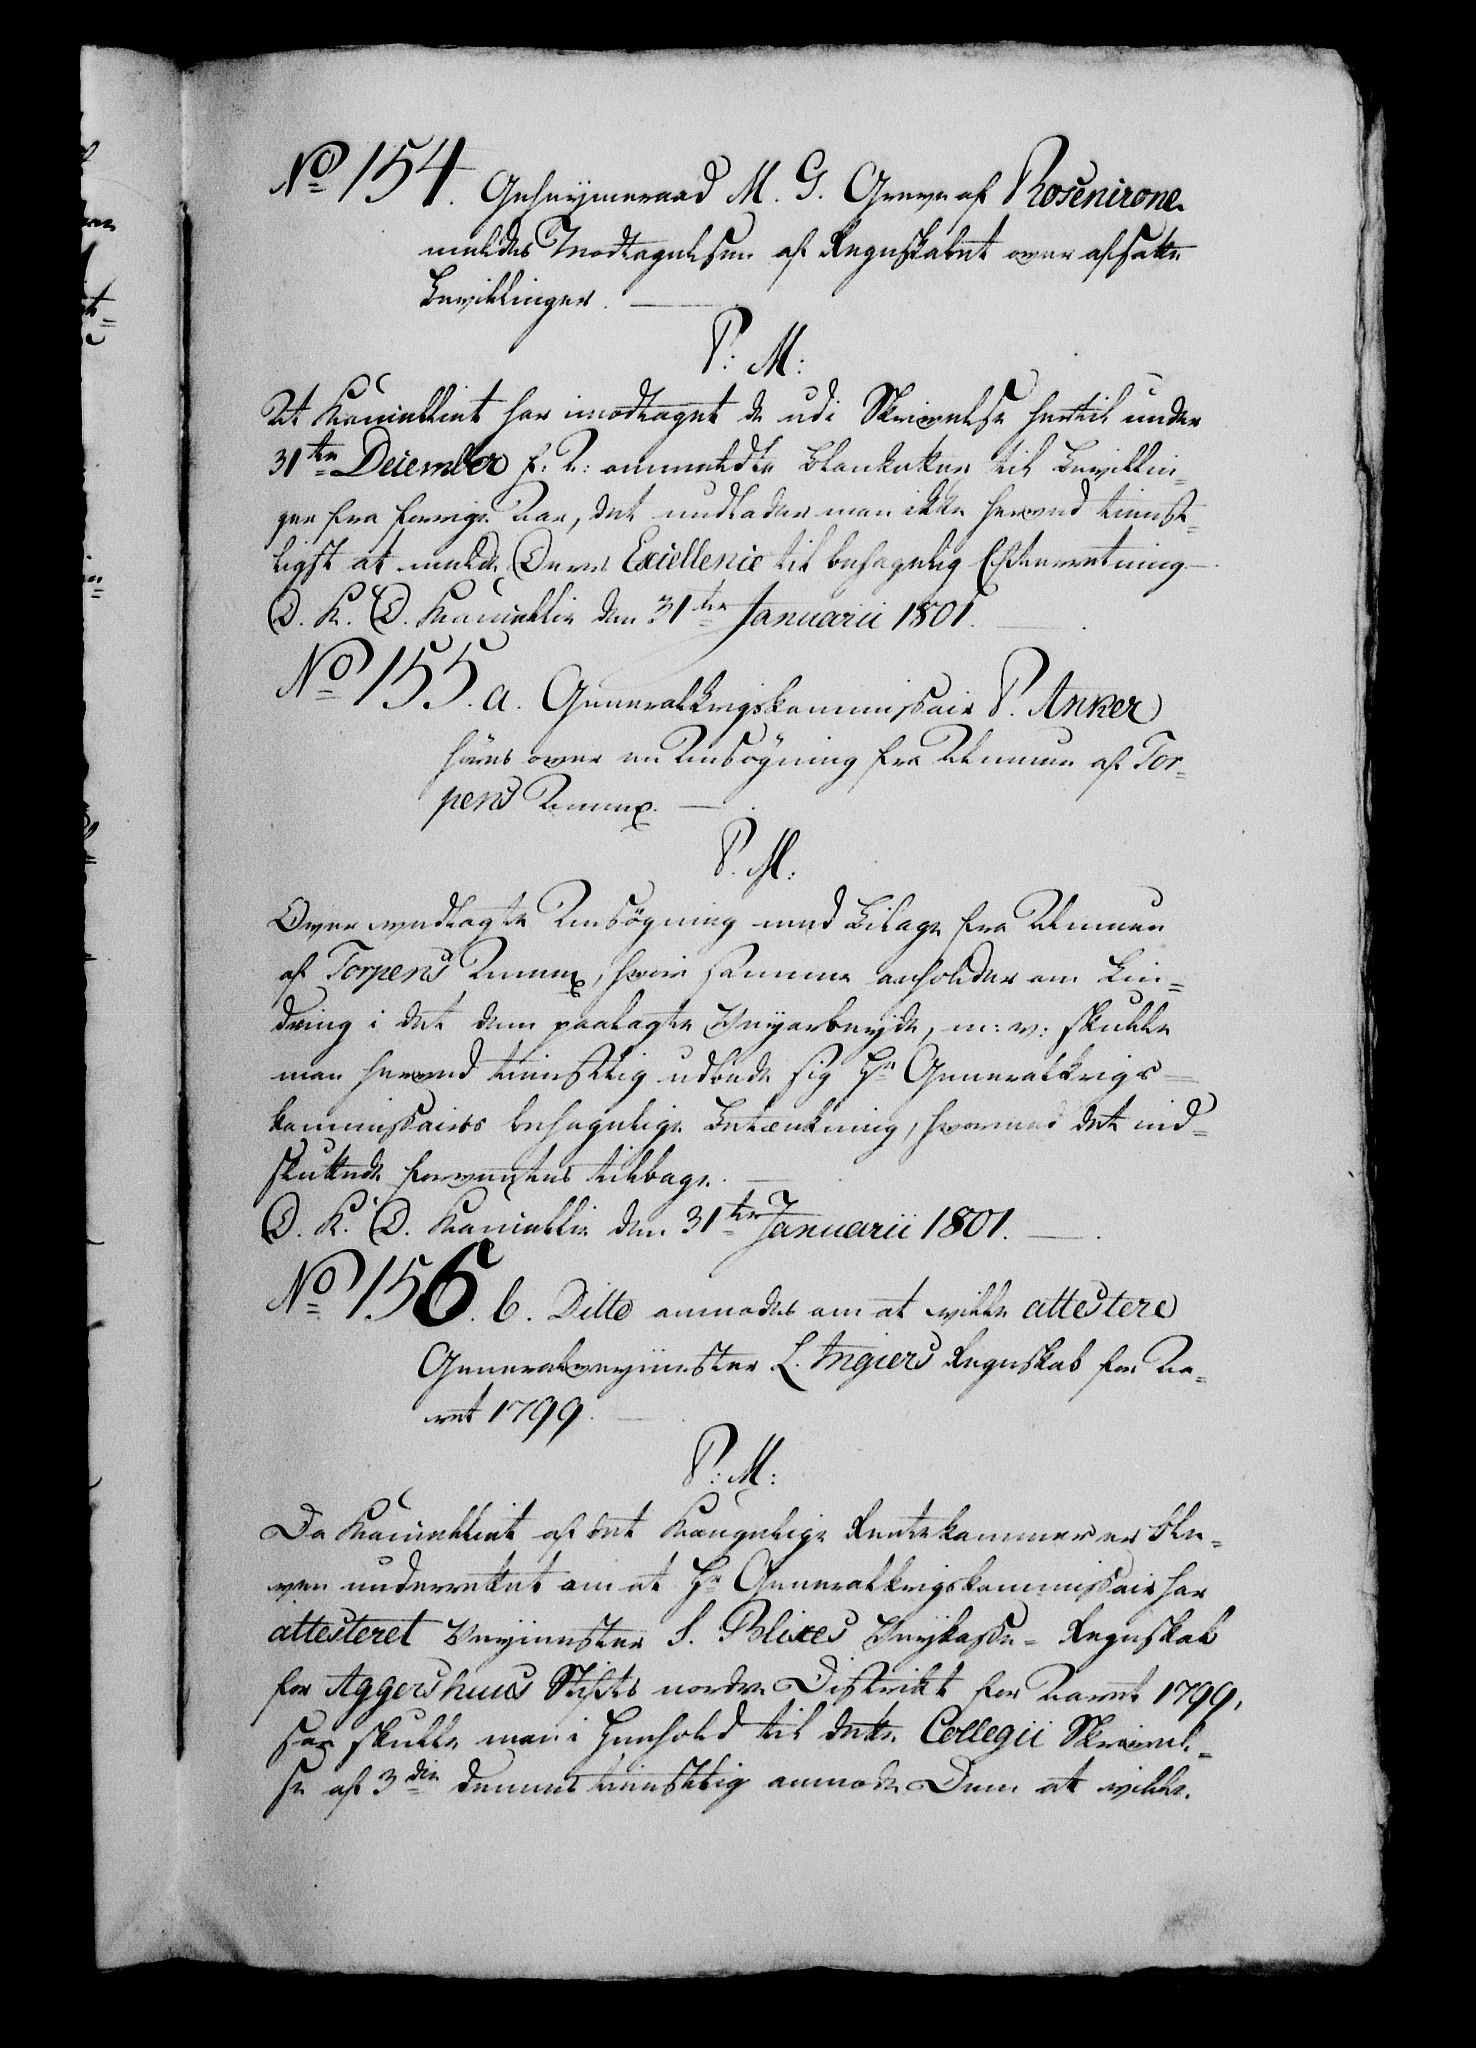 No 154. Geheymeraad M. G. Greve af Rosencrone
meldes Modtagelsen af Regnskabet over afsatte
Bevillinger.
P: M:
At Kancelliet har imodtaget de udi Skrivelse hertil under
31te December f: A: anmeldte Blanketter til Bevillin=
ger fra forrige Aar, det undlader man ikke herved tienst=
ligst at melde Deres Excellence til behagelig Efterretning.
D. K. D. Kancellie den 31te Januarii 1801.
No 155. a. Generalkrigskommissair P. Anker
høres over en Ansøgning fra Almuen af Tor=
pens Annex.
P. M:
Over vedlagte Ansøgning med Bilage fra Almuen
af Torpens Annex, hvori samme anholder om Lin=
dring i det dem paalagte Veyarbeyde, m: v: skulle
man herved tienstlig udbede sig Hr Generalkrigs=
kommissairs behagelige Betænkning, hvormed det ind=
skikkede forventes tilbage.
D. K. D. Kancellie den 31te Januarii 1801.
No 156. b. Ditto anmodes om at ville attestere
Generalveymester L. Ingiers Regnskab for Aa=
ret 1799.
P: M:
Da Kancelliet af det Kongelige Rentekammer er ble=
ven underrettet om at Hr Generalkrigskommissair har
attesteret Veymester S. Blixes Veykasse=Regnskab
for Aggershuus Stifts nordre Distrikt for Aaret 1799,
saa skulle man i Henhold til dette Collegii Skrivel=
se af 3die dennes tienstlig anmode Dem at ville